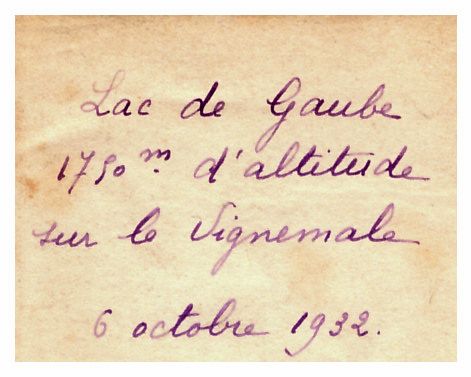 Lac de Gaube
1750 m. d'altitude
sur le Vignemale
6 octobre 1932.